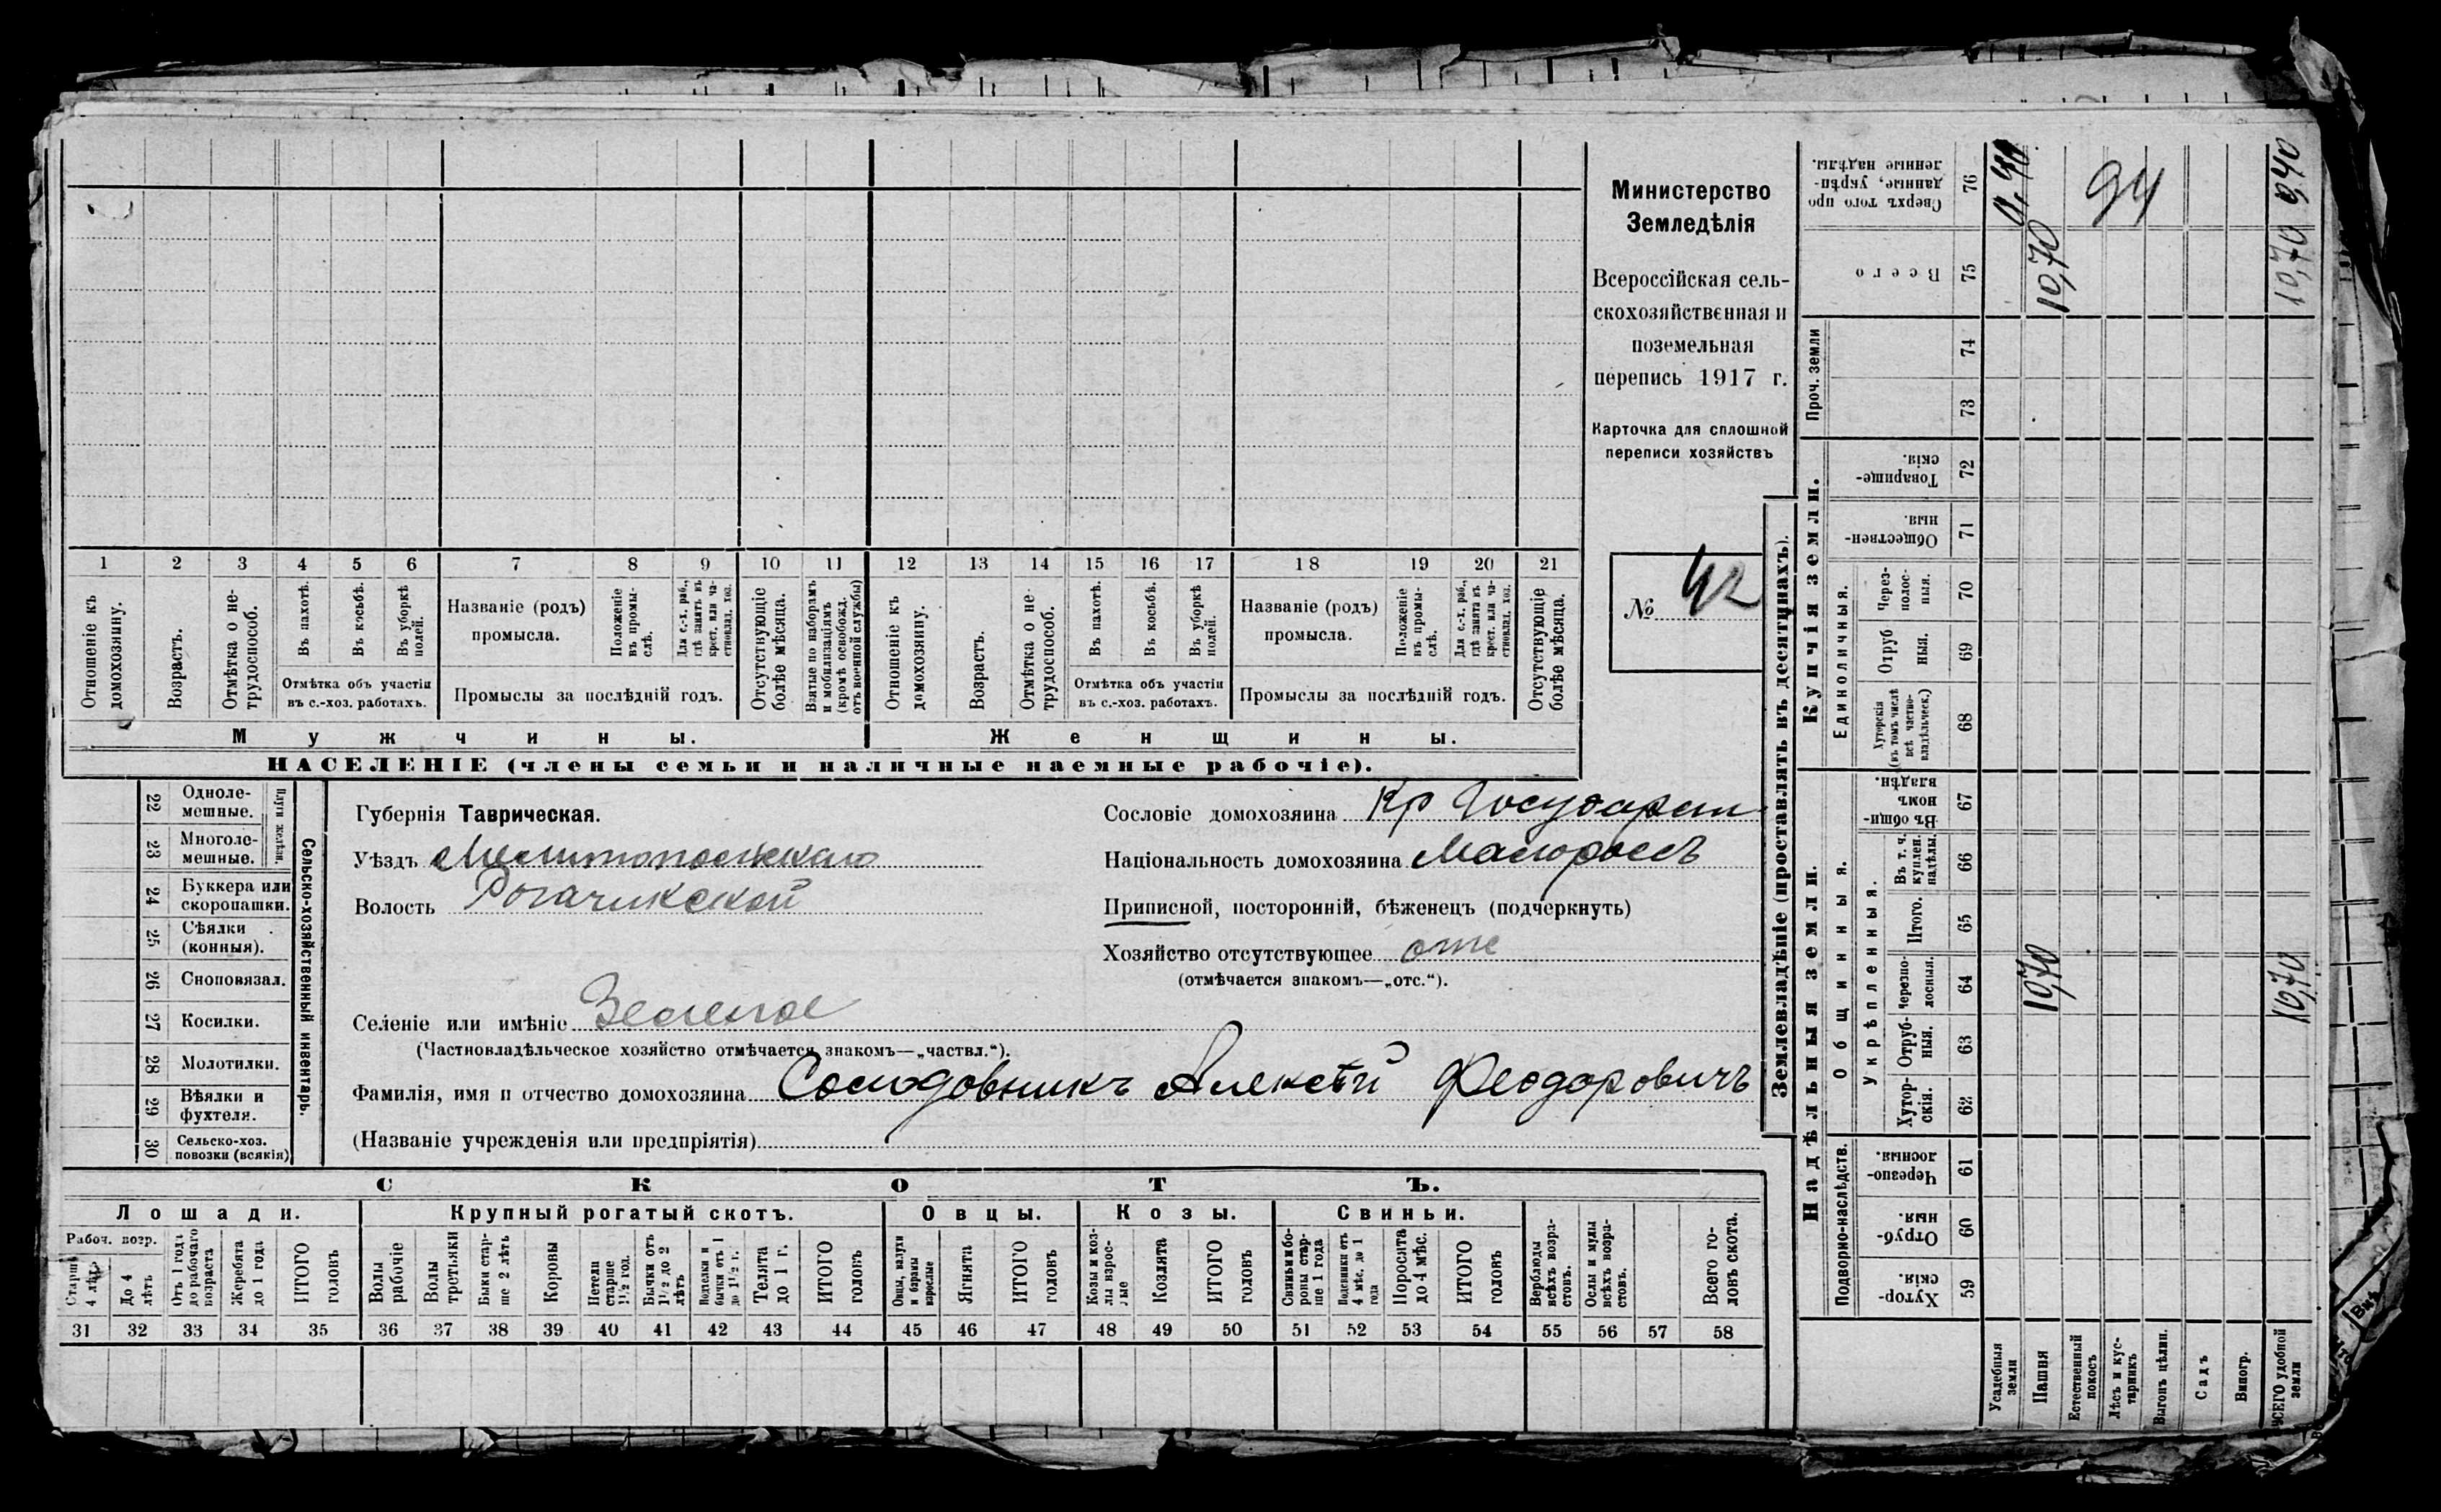 Министерство
Земледѣлія
Всероссійская сель-
скохозяйственная и
поземельная
перепись 1917 г.
Карточка для сплошной
переписи хозяйствъ
№ 42
1 2 3 4 5 6 7 8 9 10 11 12 13 14 15 16 17 18 19 20 21
Отношеніе къ домохозяину.
Возрастъ.
Отмѣтка о не-трудоспособ.
Въ пахотѣ.
Въ косьбѣ.
Въ уборкѣ полей.
Отмѣтка объ участіи
въ с.-хоз. работахъ.
Названіе (родъ)
промысла.
Положеніе въ промы-слѣ.
Для с.-х. раб., гдѣ занятъ въ крест. или ча-стновлад. хоз.
Промыслы за послѣдній годъ.
Отсутствующіе болѣе мѣсяца.
Взятые по наборамъ и мобилизаціямъ (кромѣ освобожд. отъ военной службы)
Отношеніе къ домохозяину.
Возрастъ.
Отмѣтка о не-трудоспособ.
Въ пахотѣ.
Въ косьбѣ.
Въ уборкѣ полей.
Отмѣтка объ участіи
въ с.-хоз. работахъ.
Названіе (родъ)
промысла.
Положеніе въ промы-слѣ.
Для с.-х. раб., гдѣ занята въ крест. или ча-стновлад. хоз.
Промыслы за послѣдній годъ.
Отсутствующіе болѣе мѣсяца.
Мужчины. Женщины.
НАСЕЛЕНІЕ (члены семьи и наличные наемные рабочіе).
22 Одноле-мешные.
23 Многоле-мешные.
Плуги желѣзн.
24 Буккера или скоропашки.
25 Сѣялки (конныя).
26 Сноповязал.
27 Косилки.
28 Молотилки.
29 Вѣялки и фухтеля.
30 Сельско-хоз. повозки (всякія)
Сельско-хозяйственный инвентарь.
Губернія Таврическая.
Уѣздъ Мелитопольскаго
Волость Рогачикской
Сословіе домохозяина Кр Государст
Національность домохозяина Малороссъ
Приписной, посторонній, бѣженецъ (подчеркнуть)
Хозяйство отсутствующее отс
(отмѣчается знакомъ—„отс.“).
Селеніе или имѣніе Зеленое
(Частновладѣльческое хозяйство отмѣчается знакомъ—„частвл.“).
Фамилія, имя и отчество домохозяина Солодовникъ Алексѣй Феодоровичъ
(Названіе учрежденія или предпріятія)
СКОТЪ.
Лошади. Крупный рогатый скотъ. Овцы. Козы. Свиньи.
Рабоч. возр.
Старше 4 лѣтъ
До 4 лѣтъ
Отъ 1 года до рабочаго возраста
Жеребята до 1 года
ИТОГО головъ
Волы рабочіе
Волы третьяки
Быки стар-ше 2 лѣтъ
Коровы
Нетели старше 1½ год.
Бычки отъ 1½ до 2 лѣтъ
Телята до 1 г.
ИТОГО головъ
Овцы, валухи и бараны взрослые
Ягнята
ИТОГО головъ
Козы и коз-лы взрос-лые
Козлята
ИТОГО головъ
Свиньи и бо-ровы стар-ше 1 года
Подсвинки отъ 4 мѣс. до 1 года
Поросята до 4 мѣс.
ИТОГО головъ
Верблюды всѣхъ возра-стовъ.
Ослы и мулы всѣхъ возра-стовъ.
Всего го-ловъ скота.
31 32 33 34 35 36 37 38 39 40 41 42 43 44 45 46 47 48 49 50 51 52 53 54 55 56 57 58
Землевладѣніе (проставлять въ десятинахъ).
Надѣльныя земли. Купчія земли. Проч. земли
Подворно-наслѣдств.
Общинныя.
Укрѣпленныя.
Единоличныя.
Хутор-скія. 59
Отруб-ныя. 60
Черезпо-лосныя. 61
Хутор-скія. 62
Отруб-ныя. 63
Черезпо-лосныя. 64
Итого. 65
Въ т. ч. куплен. надѣлы. 66
Въ общи-номъ владѣн. 67
Хуторскія (въ томъ числѣ всѣ частно-владѣльческ.) 68
Отруб ныя. 69
Через-полос-ныя. 70
Обществен-ныя. 71
Товарище-скія. 72
73
74
Всего 75
Сверхъ того про данные, укрѣп-ленные надѣлы. 76
Усадебныя земли
Пашня 10,70 10,70
Естественный покосъ 94
Лѣсъ и кус-тарникъ
Выгонъ цѣлин.
Садъ
Виногр.
ВСЕГО удобной земли 10,70 10,70 0,40